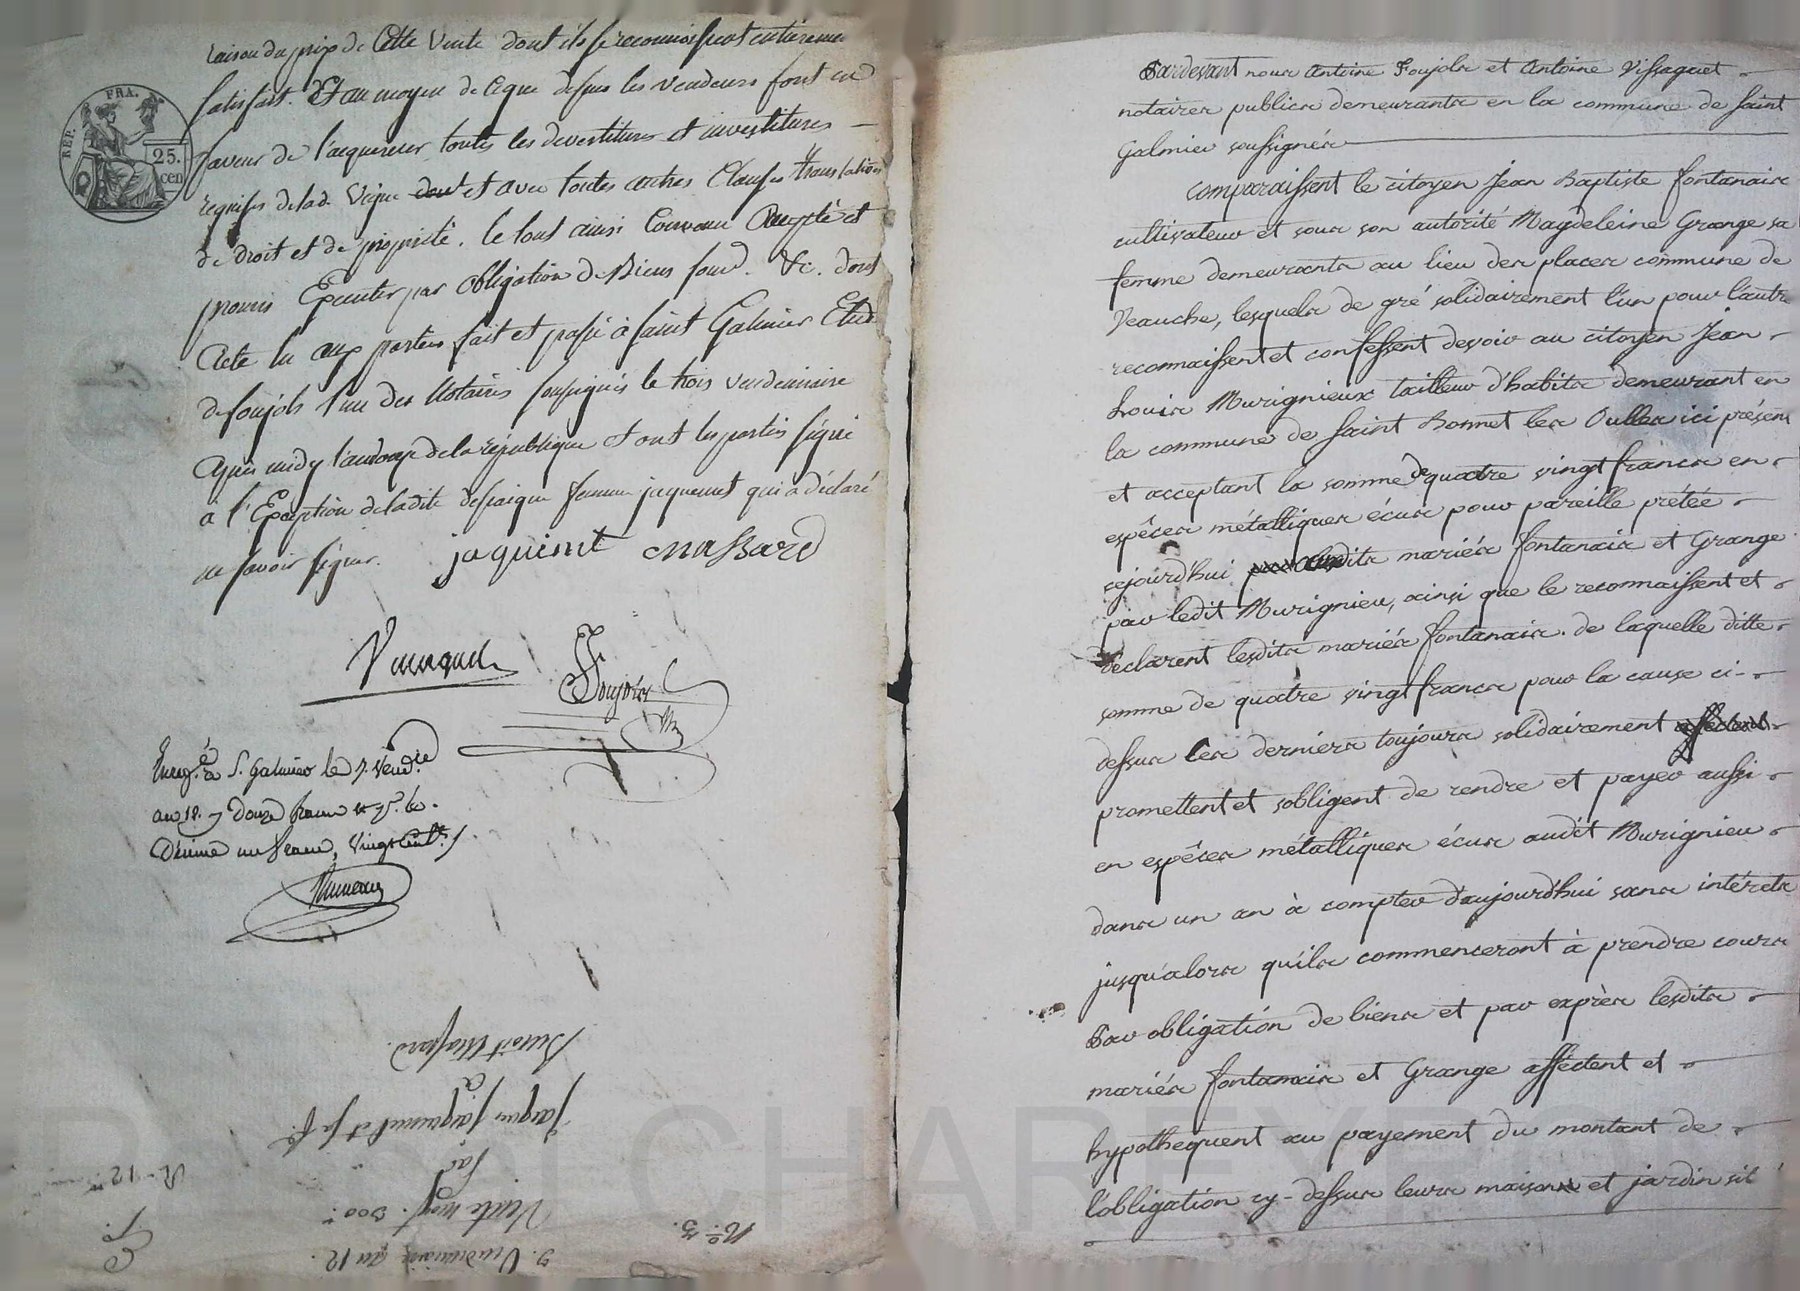 raison du prix de Cette Vente dont ils se reconnoissent entierement
satisfait. Et au moyen de ce que dessus les vendeurs font en
faveur de l'acquereur toutes les devestitures et investitures
requises de lad. Vigne et avec toutes autres Clauses translatives
de droit et de propriété. le tout ainsi Convenu Accepté et
promis Executer par obligation de Biens fond. &c. dont
Acte lu aux parties fait et passé à saint Galmier Etude
de foujols l'un des Notaires soussignés le trois vendemiaire
après midy l'an douze de la république et ont les parties signé
à l'Exception de ladite femme jaquemet qui a déclaré
ne savoir signer. jaquemet massard
Enreg.é à S. Galmier le 7. Vend.re
an 12. douze francs
Décime un franc, vingt cent.s
Benoit Massard.
à
Jacques Jaquemet et sa f.e
par
Vente moy.t 300.
N.o 3.
3. Vendemiaire an 12.
R. 12.
REP. FRA.
25. cen
Pardevant nous Antoine Foujols et Antoine Vissaguet
notaires publics demeurants en la commune de Saint
Galmier soussignés
Comparaissent le citoyen Jean Baptiste fontanair
cultivateur et sous son autorité Magdeleine Grange sa
femme demeurants au lieu des places commune de
Veauche, lesquels de gré solidairement l'un pour l'autre
reconnaissent et confessent devoir au citoyen Jean
Louis Murignieux tailleur d'habits demeurant en
la commune de Saint Bonnet les Oulles ici présent
et acceptant la somme de quatre vingt francs en
espêces métalliques écus pour pareille prétée
cejourdhui mariés fontanair et Grange
par ledit Murignieu, ainsi que le reconnaissent et
déclarent lesdits mariés fontanair. de laquelle ditte
somme de quatre vingt francs pour la cause ci-
dessus les derniers toujours solidairement
promettent et sobligent de rendre et payer aussi
en espêces métalliques écus audit Murignieu
dans un an à compter d'aujourd'hui sans intérets
jusqu'alors quils commenceront à prendre cours
Par obligation de biens et par exprès lesdits
mariés fontanair et Grange affectent et
hypothequent au payement du montant de
l'obligation cy-dessus leurs maison et jardin sit